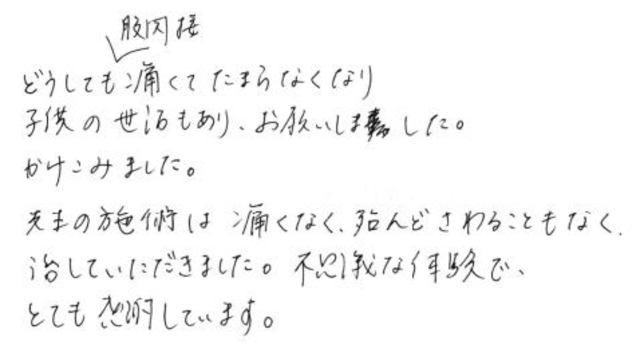 股関接
どうしても痛くてたまらなくなり
子供の世話もあり、お願いしました。
かけこみました。
先生の施術は痛くなく、殆んどさわることもなく、
治していただきました。不思議な体験で、
とても感謝しています。